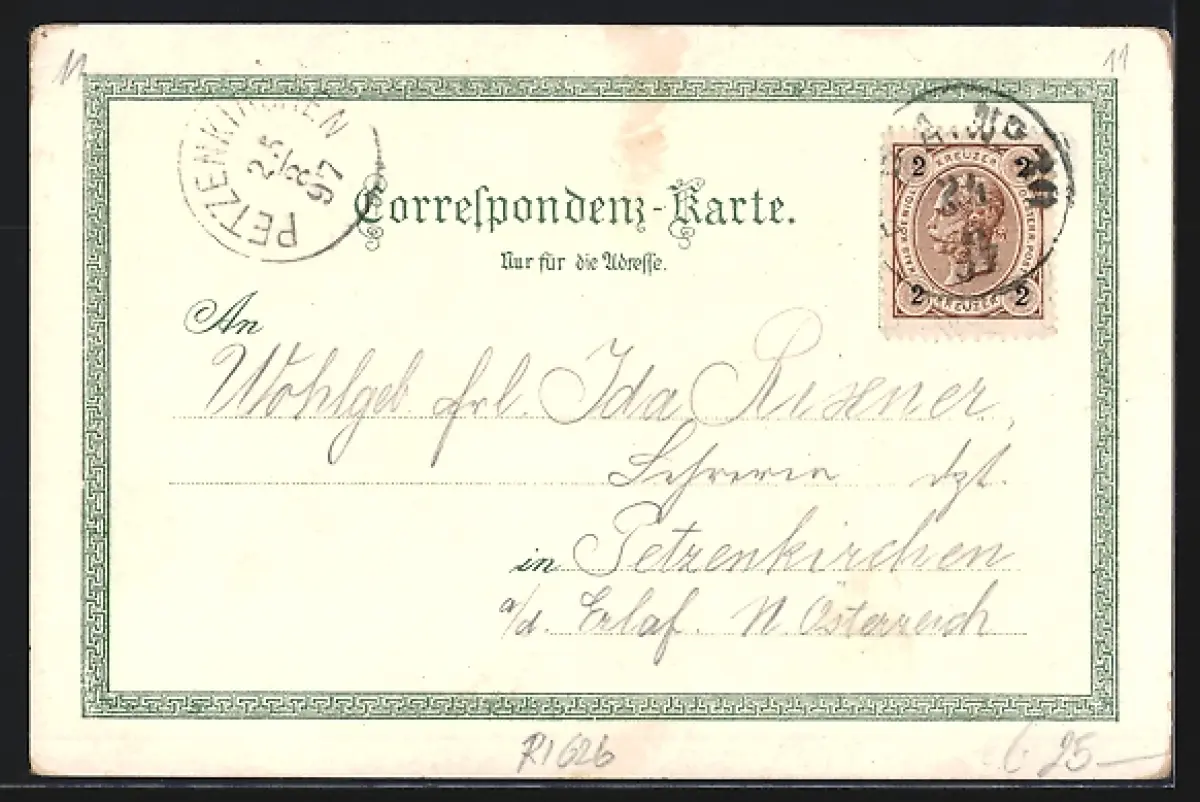 11
11
PETZENKIRCHEN
25
8
97
2 KREUZER 2
2 KREUZER 2
24
97
Correſpondenz-Karte.
Nur für die Adreſſe.
An
Wohlgeb frl. Ida
Lehrerin dzt.
in Petzenkirchen
a/d. Erlaf. N. Österreich
R1626
25—